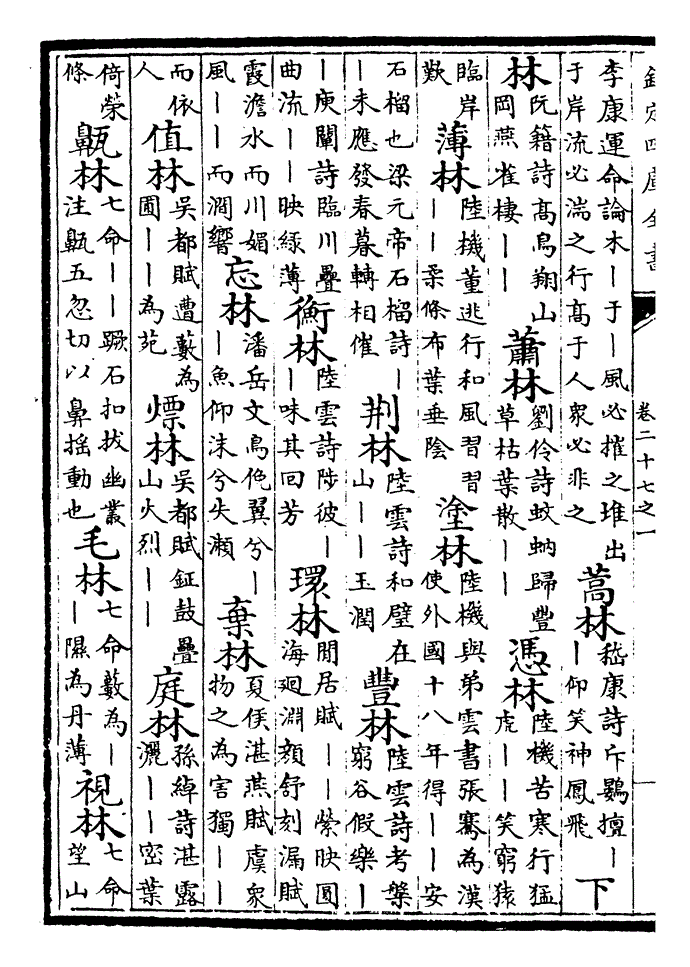 欽定四庫全書 卷二十七之一
李康運命論木|于|風必摧之堆出于岸流必湍之行髙于人衆必非之 蒿林 嵇康詩斥鷃擅||仰笑神鳳飛 下
林 阮籍詩髙鳥翔山岡燕雀棲|| 蕭林 劉伶詩蚊蚋歸豐草枯葉散|| 憑林 陸機苦寒行猛虎||笑窮猿
臨岸歎 薄林 陸機董逃行和風習習||柔條布葉垂陰 塗林 陸機與弟雲書張騫為漢使外國十八年得||安
石榴也梁元帝石榴詩||未應發春暮轉相催 荆林 陸雲詩和璧在山||玉潤 豐林 陸雲詩考槃窮谷假樂|
|庾闡詩臨川疊曲流||映緑薄 衡林 陸雲詩陟彼||味其回芳 環林 閒居賦||縈映圓海廻淵顔舒刻漏賦
霞澹水而川媚風||而澗響 忘林 潘岳文鳥俛翼兮||魚仰沫兮失瀬 棄林 夏侯湛燕賦虞衆物之為害獨||
而依人 值林 吳都賦遭藪為圃||為苑 熛林 吳都賦鉦鼓疊山火烈|| 庭林 孫綽詩湛露灑||密葉
倚榮條 鼿林 七命||蹶石扣拔幽叢注鼿五忽切以鼻揺動也 毛林 七命藪為||隰為丹薄 視林 七命望山